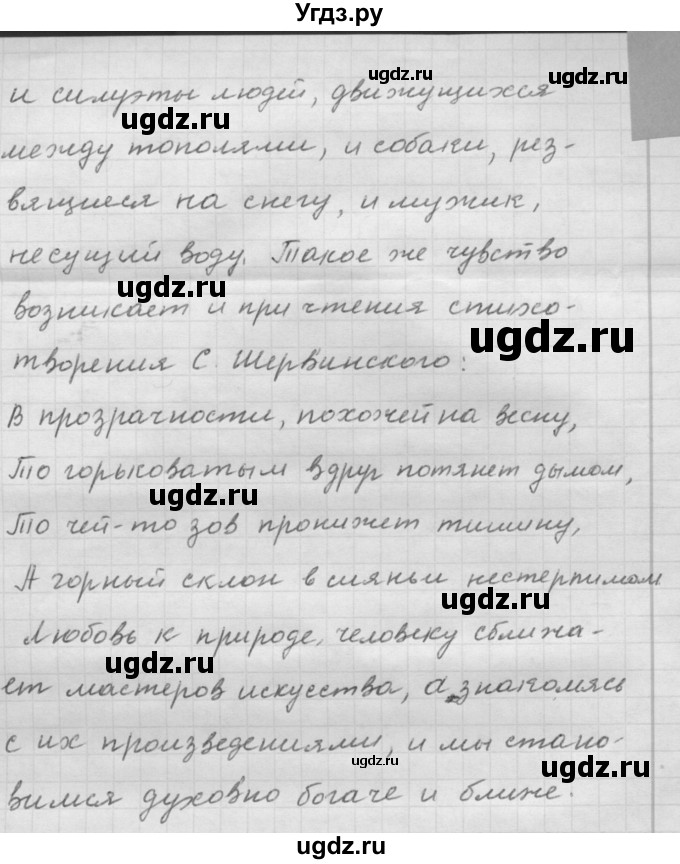 Угдз.ру
и силуэты людей, движущихся
между тополями, и собаки, рез-
вящиеся на снегу, и мужик,
несущий воду. Такое же чувство
возникает и при чтения стихо-
творения С. Шервинского:
В прозрачности, похожей на весну,
То горьковатым вдруг потянет дымом,
То чей-то зов пронижет тишину,
А горный склон в сияньи нестерпимом
Любовь к природе, человеку сближа-
ет мастеров искусства, а знакомясь
с их произведениями, и мы стано-
вимся духовно богаче и ближе.
ugdz.ru
ugdz.ru
ugdz.ru
ugdz.ru
ugdz.ru
ugdz.ru
ugdz.ru
ugdz.ru
ugdz.ru
ugdz.ru
ugdz.ru